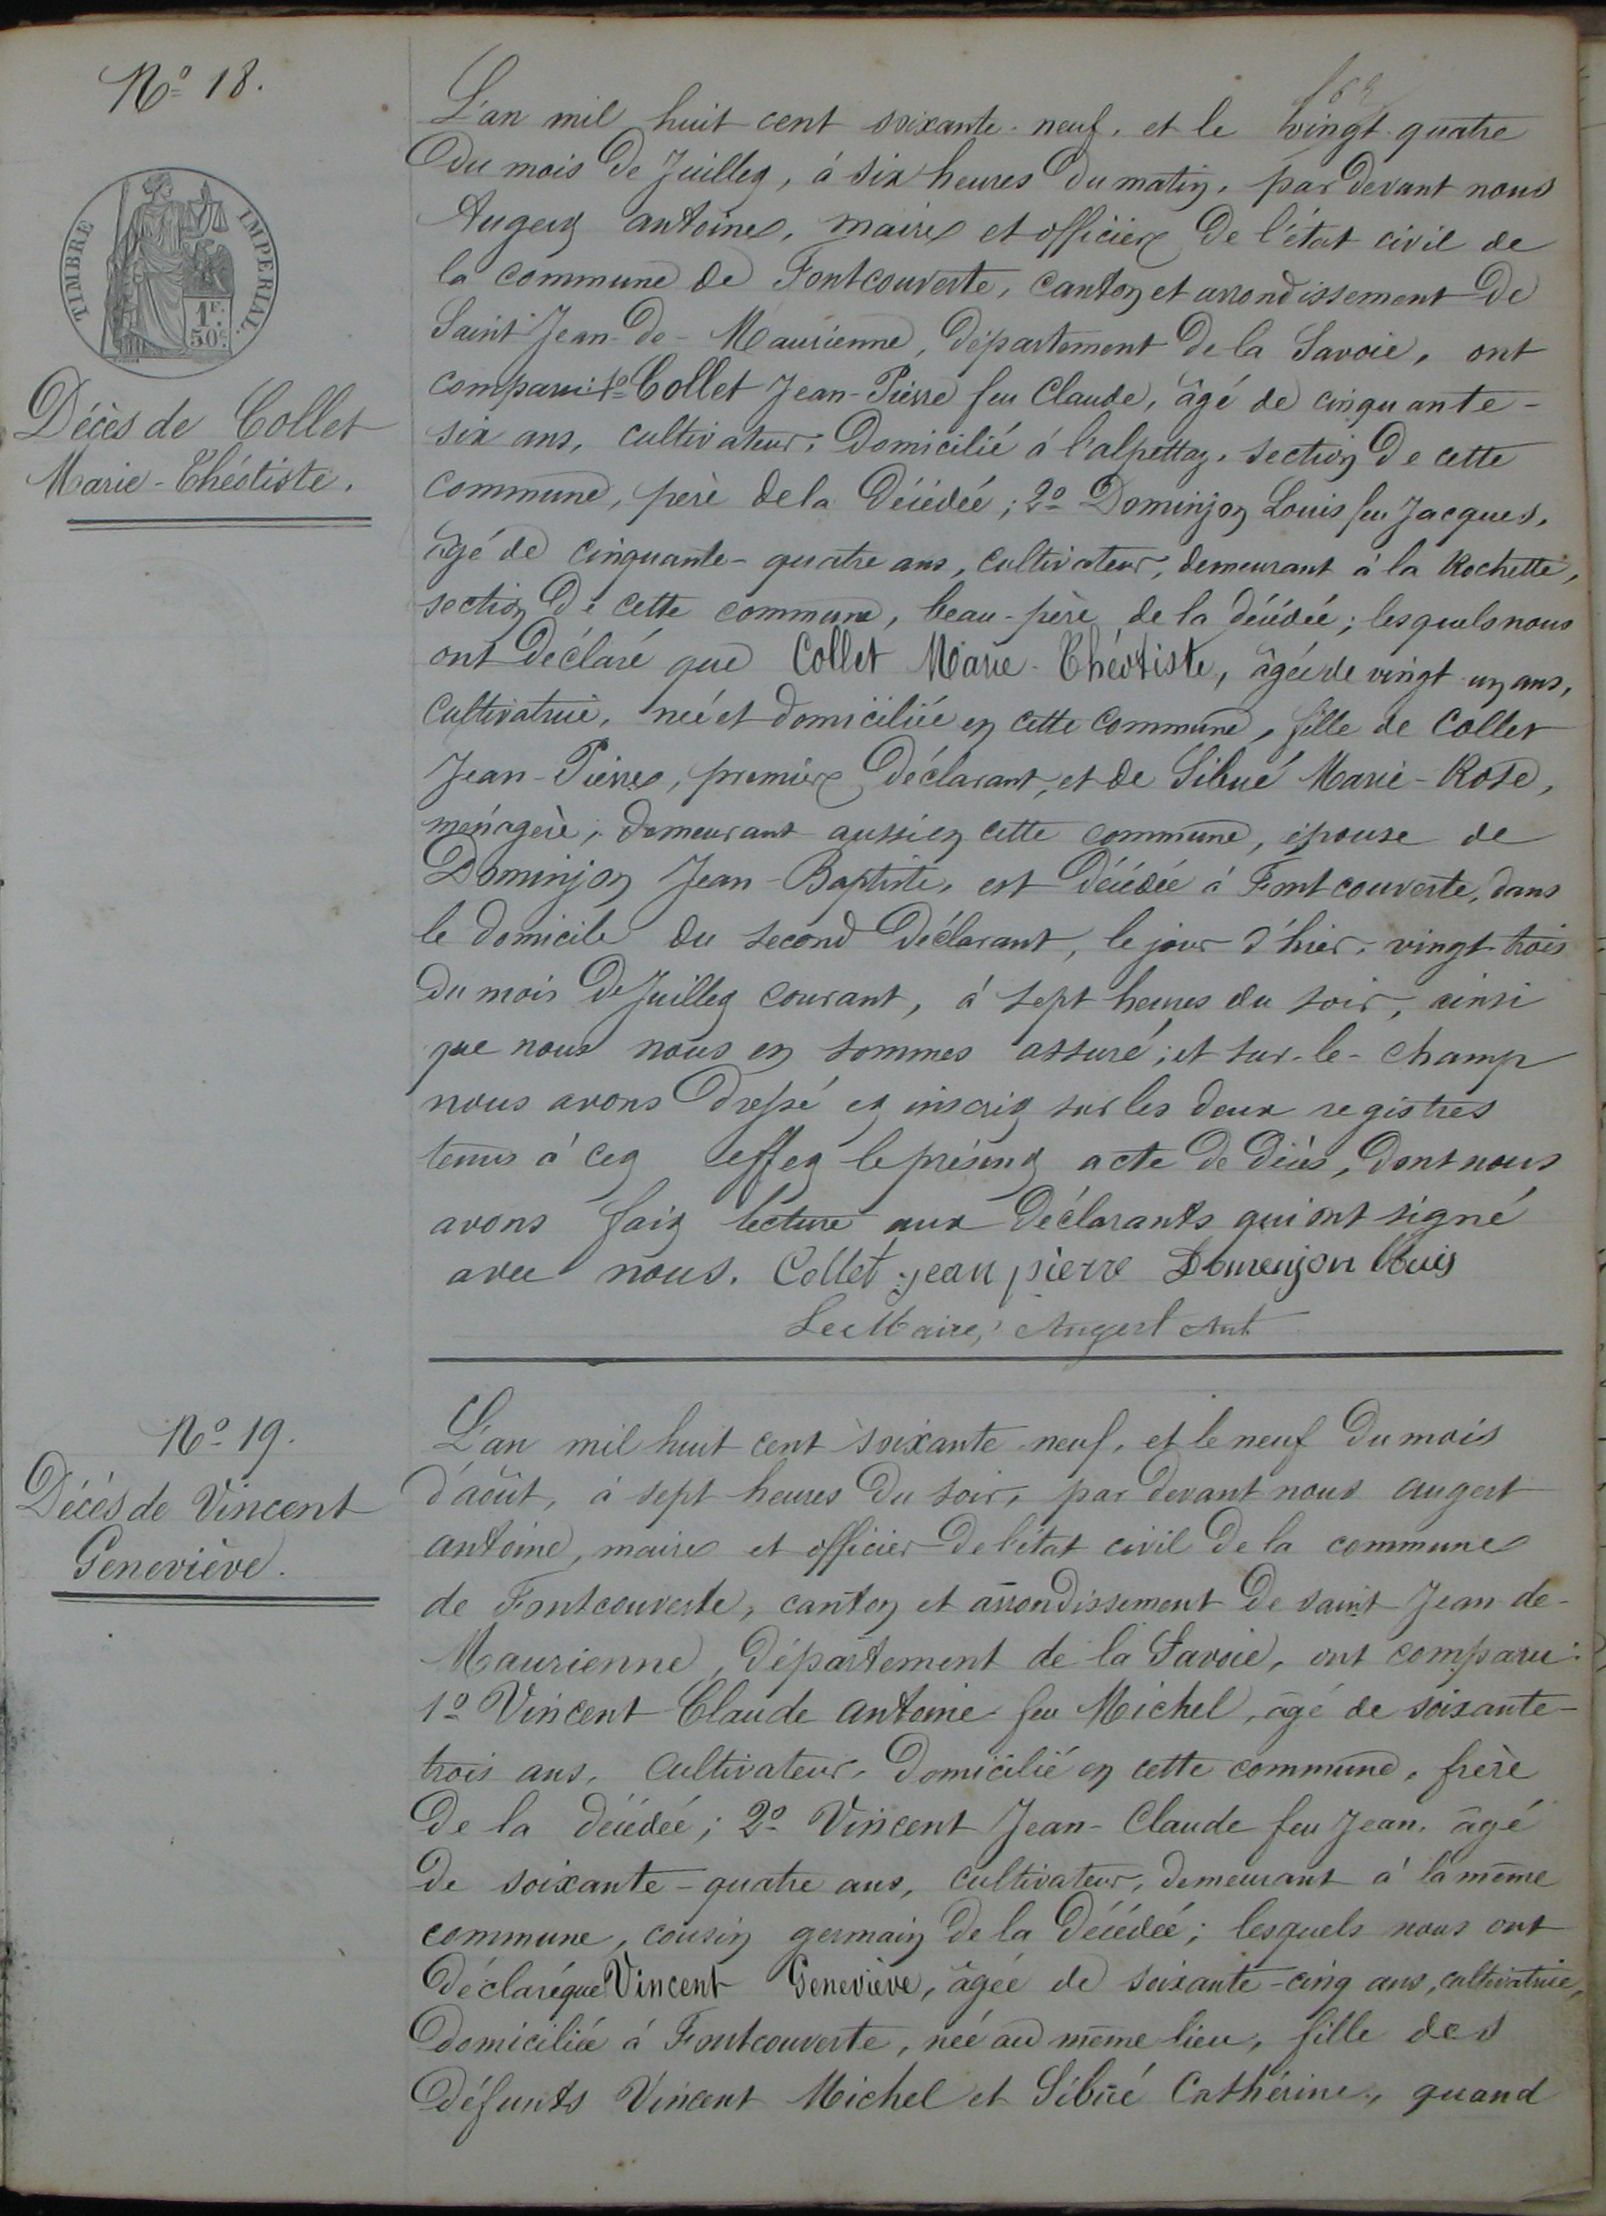 Nº 18.
TIMBRE IMPERIAL.
1F.
50c.
Décès de Collet
Marie-Théotiste.
L'an mil huit cent soixante-neuf, et le vingt-quatre
du mois de Juillet, à six heures du matin, par devant nous
Augert antoine, maire et officier de l'état civil de
la commune de Fontcouverte, canton et arrondissement de
Saint-Jean-de-Maurienne, département de la Savoie, ont
comparu: 1º Collet Jean-Pierre feu Claude, âgé de cinquante-
six ans, cultivateur, domicilié à l'alpettaz, section de cette
commune, père de la décédée; 2º Dominjon Louis feu Jacques,
âgé de cinquante-quatre ans, cultivateur, demeurant à la Rochette,
section de cette commune, beau-père de la décédée; lesquels nous
ont déclaré que Collet Marie-Théotiste, âgée de vingt-un ans,
cultivatrice, née et domiciliée en cette commune, fille de Collet
Jean-Pierre, premier déclarant, et de Sibué Marie-Rose,
ménagère, demeurant aussi en cette commune, épouse de
Dominjon Jean-Baptiste, est décédée à Fontcouverte, dans
le domicile du second déclarant, le jour d'hier, vingt-trois
du mois de Juillet courant, à sept heures du soir, ainsi
que nous nous en sommes assuré; et sur-le-champ
nous avons dressé et inscrit sur les deux registres
tenus à cet effet le présent acte de décès, dont nous
avons fait lecture aux déclarants qui ont signé
avec nous. Collet jean pierre Domenjon Louis
Le Maire, Augert Ant
Nº 19.
Décès de Vincent
Geneviève.
L'an mil huit cent soixante-neuf, et le neuf du mois
d'août, à sept heures du soir, par devant nous augert
antoine, maire et officier de l'état civil de la commune
de Fontcouverte, canton et arrondissement de saint Jean-de-
Maurienne, département de la Savoie, ont comparu:
1º Vincent Claude antoine feu Michel, âgé de soixante-
trois ans, cultivateur, domicilié en cette commune, frère
de la décédée; 2º Vincent Jean-Claude feu Jean, âgé
de soixante-quatre ans, cultivateur, demeurant à la même
commune, cousin germain de la décédée; lesquels nous ont
déclaré que Vincent Geneviève, âgée de soixante-cinq ans, cultivatrice,
domiciliée à Fontcouverte, née au même lieu, fille des
défunts Vincent Michel et Sibué Cathérine, quand